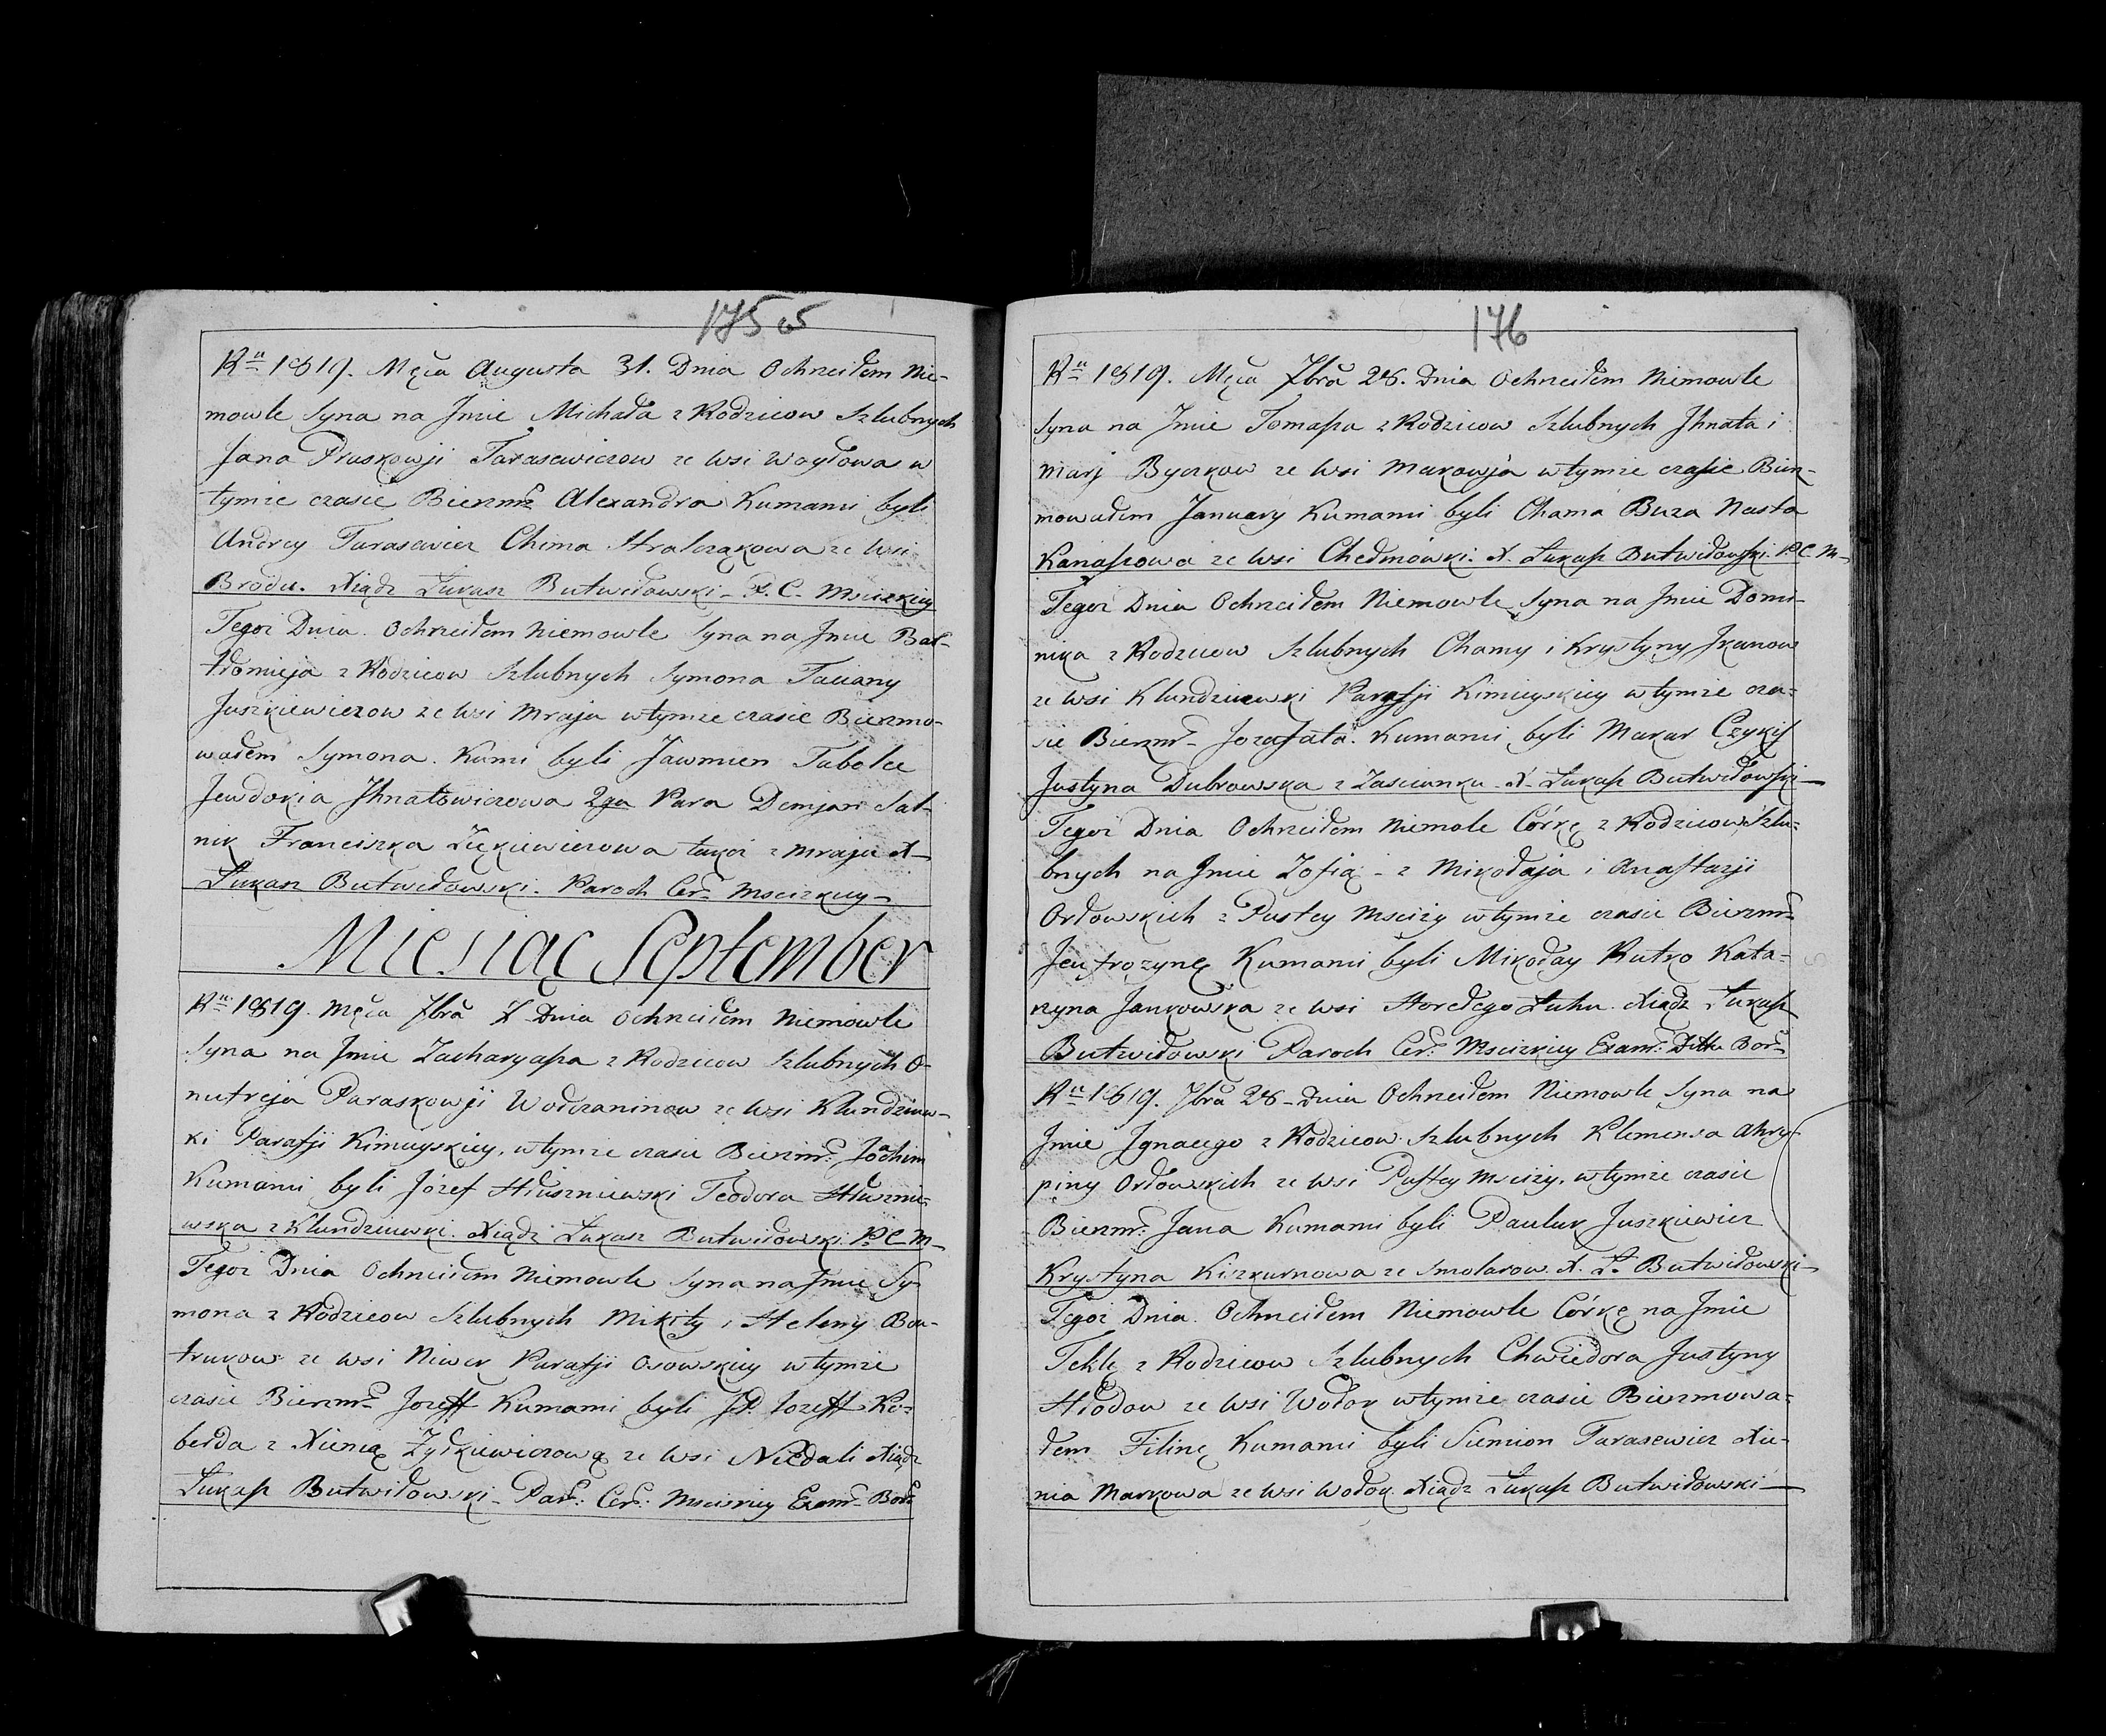 175
Rᵘ 1819. Męca Augusta 31. Dnia Ochrzciłem Nie-
mowle Syna na Jmie Michała z Rodzicow Szlubnych
Jana Praskowji Tarasewiczow ze wsi Woyłowa w
tymże czasie Bierzmᵒ Alexandra Kumami byli
Andrey Tarasewicz Chima ze wsi
Brodu. Xiądz Łukasz Butwiłowski - P. C. Mscizkiey
Tegoż Dnia. Ochrzciłem Niemowle Syna na Jmie Bał-
tłomieja z Rodzicow Szlubnych Symona Taciany
Juszkiewiczow ze wsi Mraja w tymże czasie Bierzmo-
wałem Symona. Kumi byli Jawmien Tabolce
Jewdokia Jhnatowiczowa 2ga Para Demjan Sal-
nik Franciszka takoż z Mraju X-
Łukasz Butwiłowski. Paroch Cerᵒ Mscizkiey-
Miesiąc September
Rᵘ 1819. Męca 7bra Dnia Ochrzciłem Niemowle
Syna na Jmie Zacharyasza z Rodzicow Szlubnych O-
nufreja Paraskowji Wołczaninow ze wsi Klundziew-
ki Parafji Kimieyskiey, w tymże czasie Bierzmᵒ Joachim
Kumami byli Józef Hłuszniewski Teodora Hłusznie-
wska z Klundziewki. Xiądz Łukasz Butwiłowski P C M-
Tegoż Dnia Ochrzciłem Niemowle Syna na Jmie Sy-
mona z Rodzicow Szlubnych Mikity i Heleny Bou-
trukow ze wsi Niwek Parafji Osowskiey w tymże
czasie Bierzmᵒ Jozeff Kumami byli JP. Jozeff Ko-
berda z Xienią Żyłkiewiczową ze wsi Niedali Xiądz
Łukasz Butwiłowski - Parᵒ: Cerᵒ: Mscizkiey Examᵒ Borᵒ
176
Rᵘ 1819. Męca 7bra 28. Dnia Ochrzciłem Niemowle
Syna na Jmie Tomasza z Rodzicow Szlubnych Jhnata i
Marj Byczkow ze wsi Makowja w tymże czasie Bierz-
mowałem January Kumami byli Chama Buza Nasta
Kanaszowa ze wsi Chełmówki. X. Łukasz Butwiłowski. P. C. M-
Tegoż Dnia Ochrzciłem Niemowle Syna na Jmie Domi-
nika z Rodzicow Szlubnych Chamy i Krystyny Jkanow
ze wsi Klundziewki Parafji Kimieyskiey w tymże cza-
sie Bierzmᵒ - Jozafata. Kumami byli Makar Czykif
Justyna Dubrowska z Zascianku - X - Łukasz Butwiłowski-
Tegoż Dnia Ochrzciłem Niemole Córkę z Rodzicow Szlu-
bnych na Jmie Zofią - z Mikołaja i Anastazji
Orłowskich z Pustey Msciży w tymże czasie Bierzmᵒ
Jeufrozynę Kumami byli Mikołay Rutko Kata-
rzyna Jankowska ze wsi Horełego Łuhu. Xiądz Łukasz
Butwiłowski Paroch Cerᵒ: Mscizkiey Examᵒ: Borᵒ
Rᵘ 1819. 7bra 28 - Dnia Ochrzciłem Niemowle Syna na
Jmie Jgnacego z Rodzicow Szlubnych Klemensa Ahry-
piny Orłowskich ze wsi Pustey Msciży, w tymże czasie
Bierzmᵒ: Jana Kumami byli Pauluk Juszkiewicz
Krystyna Kiszkurnowa ze Smolarow. X. Ł. Butwiłowski-
Tegoż Dnia. Ochrzciłem Niemowle Córkę na Jmie
Teklę z Rodzicow Szlubnych Chwiedora Justyny
Hłodow ze wsi Wołok w tymże czasie Bierzmowa-
łem Filinę Kumami byli Siemion Tarasewicz Xie-
nia Markowa ze wsi Wołok Xiądz Łukasz Butwiłowski-